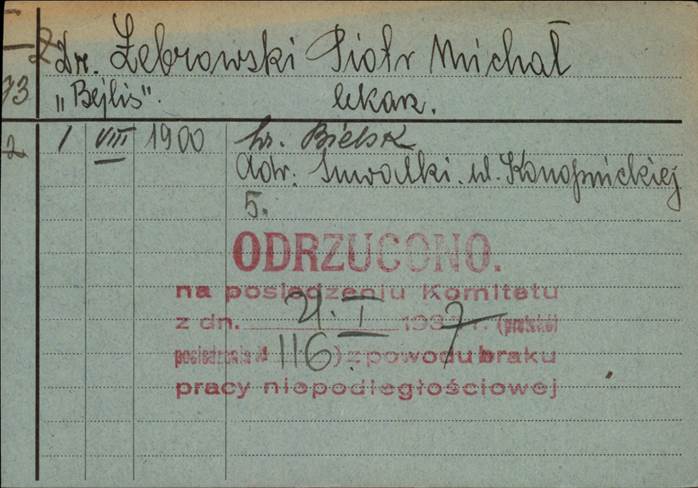 Dr. Żebrowski Piotr Michał
73. „Bejlis”. lekarz.
2 1 VIII 1900 hr. Bielsk
Adr. Suwałki. ul. Konopnickiej
5.
ODRZUCONO.
na posiedzeniu Komitetu
z dn. 21.I 1937 r. (protokół
posiedzenia № 116.) z powodu braku
pracy niepodległościowej